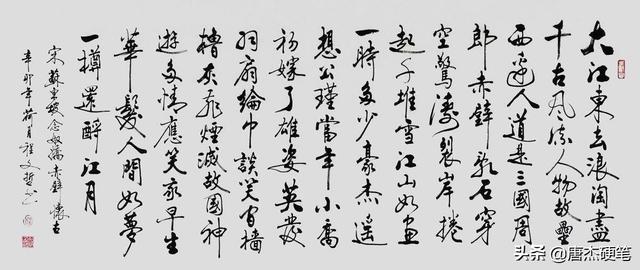 大江東去浪淘盡
千古风流人物故壘
西邊人道是三國周
郎赤壁乱石穿
空驚濤裂岸捲
起千堆雪江山如画
一時多少豪杰遙
想公瑾當年小喬
初嫁了雄姿英發
羽扇綸巾談笑間檣
櫓灰飛煙滅故國神
遊多情應笑我早生
華髮人間如夢
一樽還酹江月
宋蘇東坡念奴嬌赤壁懷古
辛卯年荷月程文哲书
头条 @唐杰硬笔